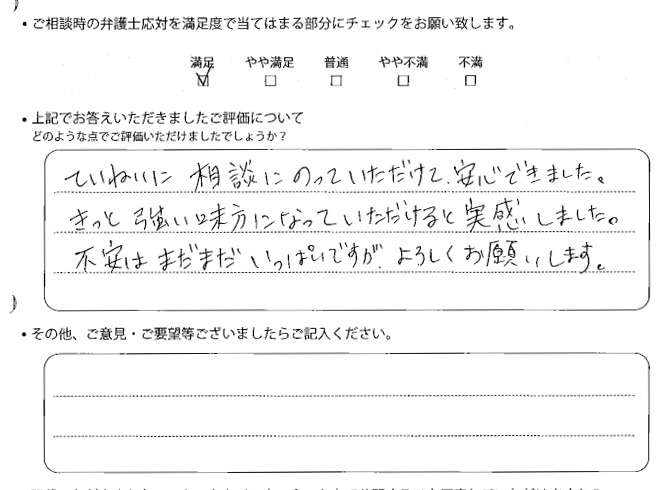 • ご相談時の弁護士応対を満足度で当てはまる部分にチェックをお願い致します。
満足 やや満足 普通 やや不満 不満
☑ □ □ □ □
• 上記でお答えいただきましたご評価について
どのような点でご評価いただけましたでしょうか？
ていねいに 相談にのっていただけて、安心できました。
きっと 強い味方になっていただけると実感しました。
不安は まだまだ いっぱいですが、よろしくお願いします。
• その他、ご意見・ご要望等ございましたらご記入ください。